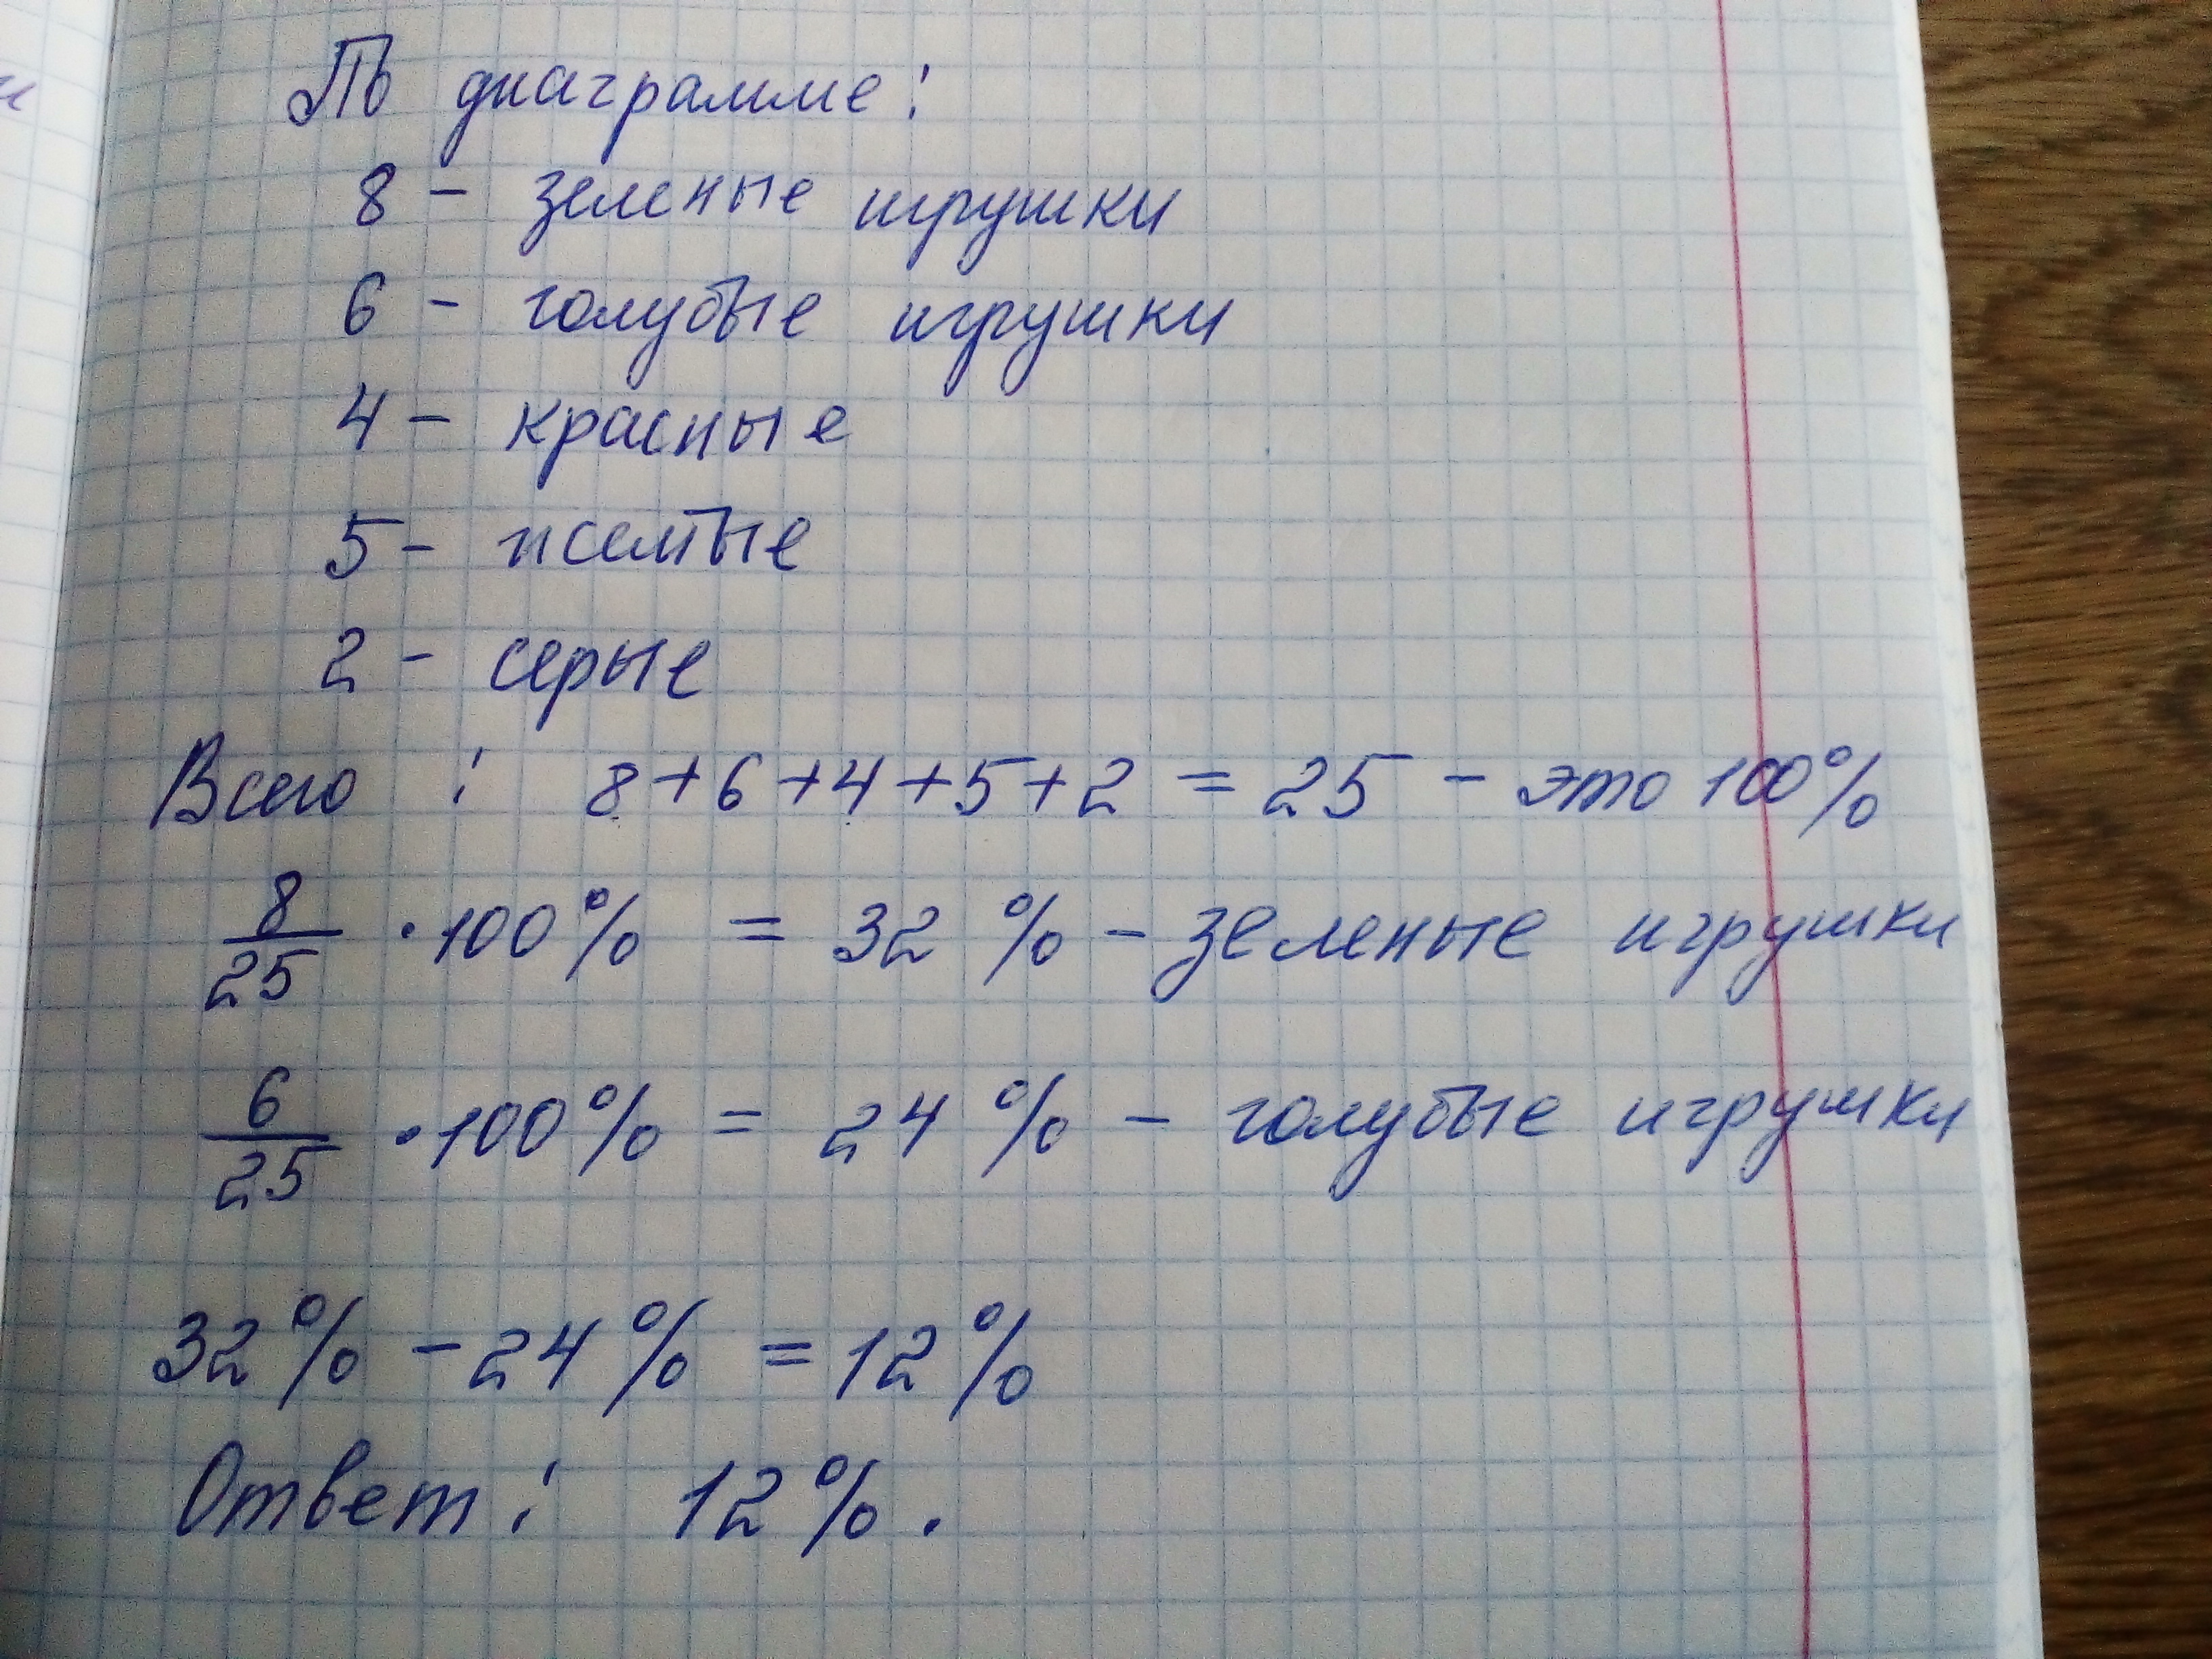 По диаграмме:
8 - зеленые игрушки
6 - голубые игрушки
4 - красные
5 - желтые
2 - серые
Всего : 8+6+4+5+2 = 25 - это 100%
8/25 · 100% = 32 % - зеленые игрушки
6/25 · 100% = 24 % - голубые игрушки
32% - 24% = 12%
Ответ: 12%.